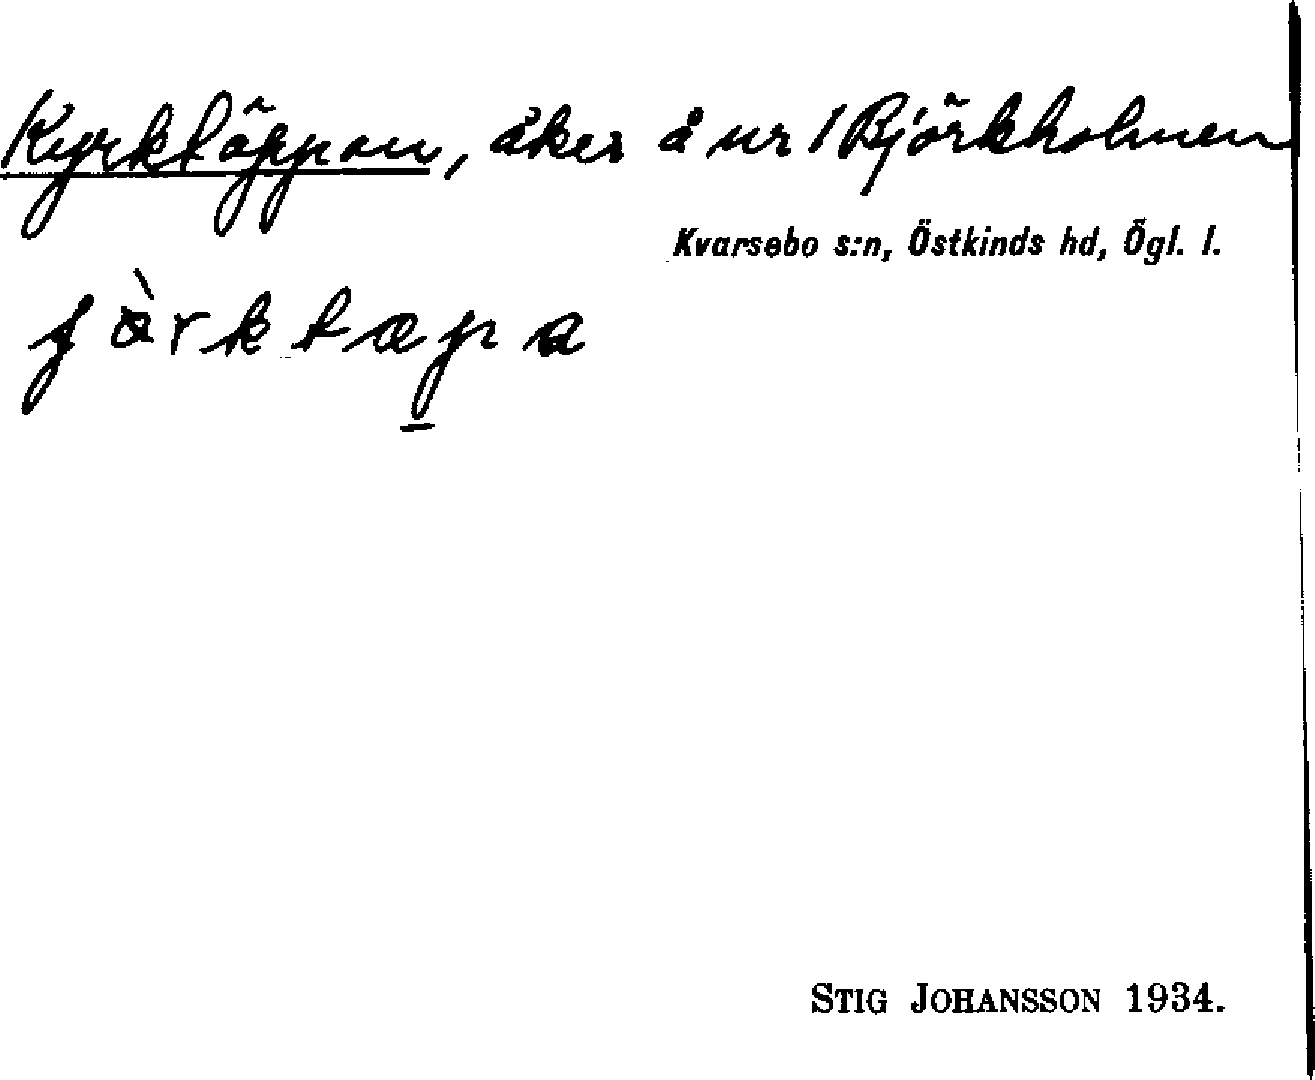 Kyrktäppan, åker å nr 1 Björkholmen
Kvarsebo s:n, Östkinds hd, Ögl. l.
STIG JOHANSSON 1934.